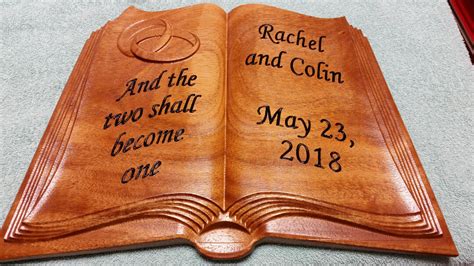 And the
two shall
become
one
Rachel
and Colin
May 23,
2018